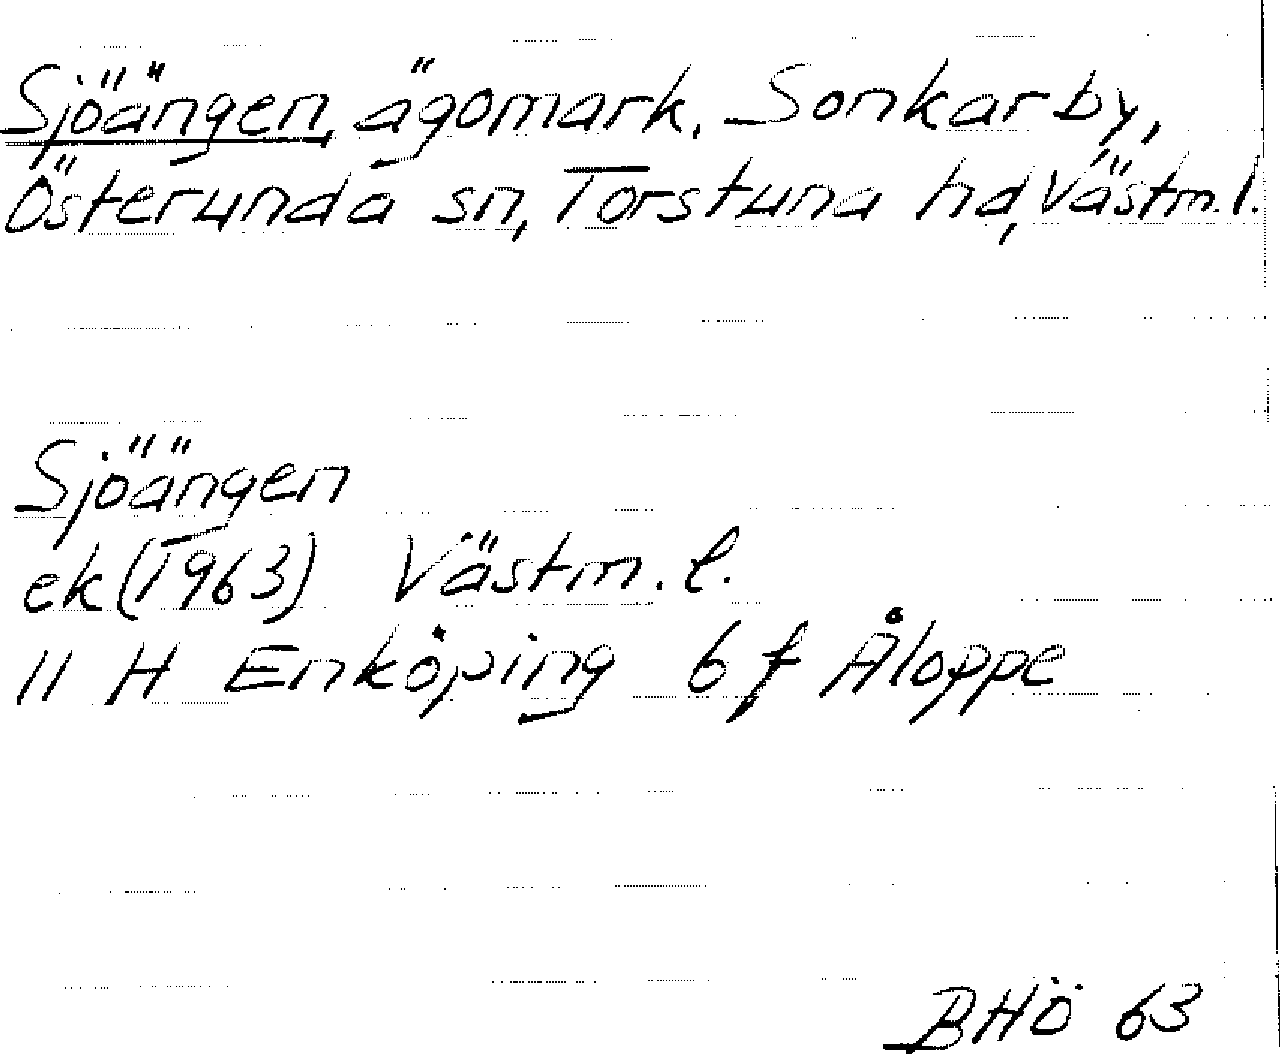 Sjöängen, ägomark, Sonkarby,
Österunda sn, Torstuna hd, Västm. l.
Sjöängen
ek (1963) Västm. l.
11 H Enköping 6 f Åloppe
BHÖ 63